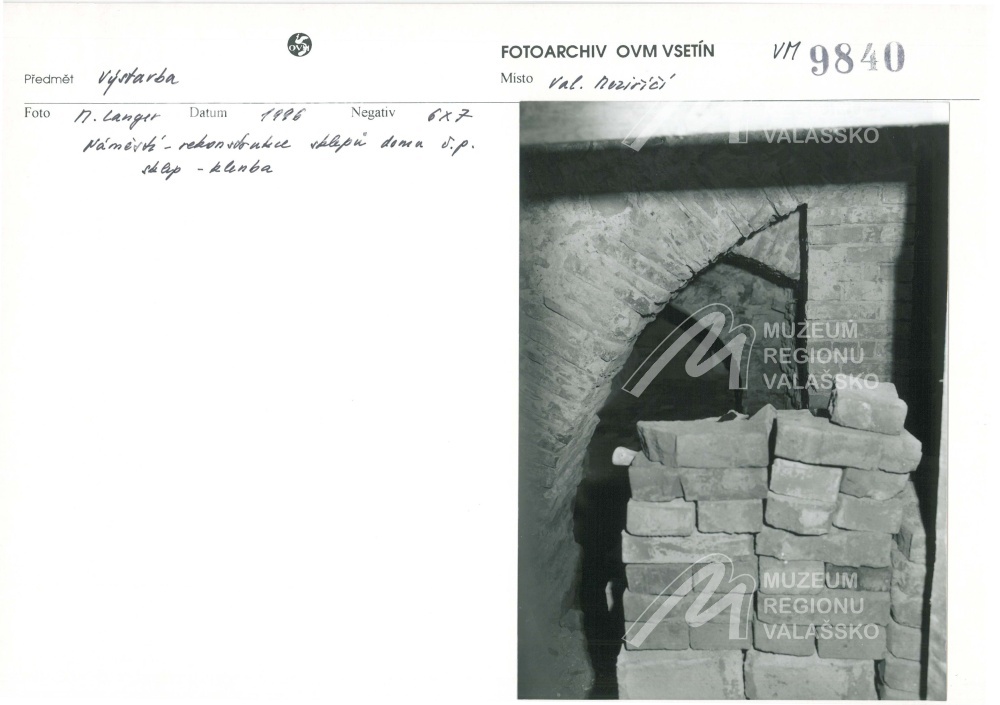 OVM
FOTOARCHIV OVM VSETÍN VM 9840
Předmět Výstavba
Místo Val. Meziříčí
Foto M. Langer Datum 1996 Negativ 6x7
Náměstí - rekonstrukce sklepů domu č.p.
sklep - klenba
VALAŠSKO
MUZEUM
REGIONU
VALAŠSKO
MUZEUM
REGIONU
VALAŠSKO